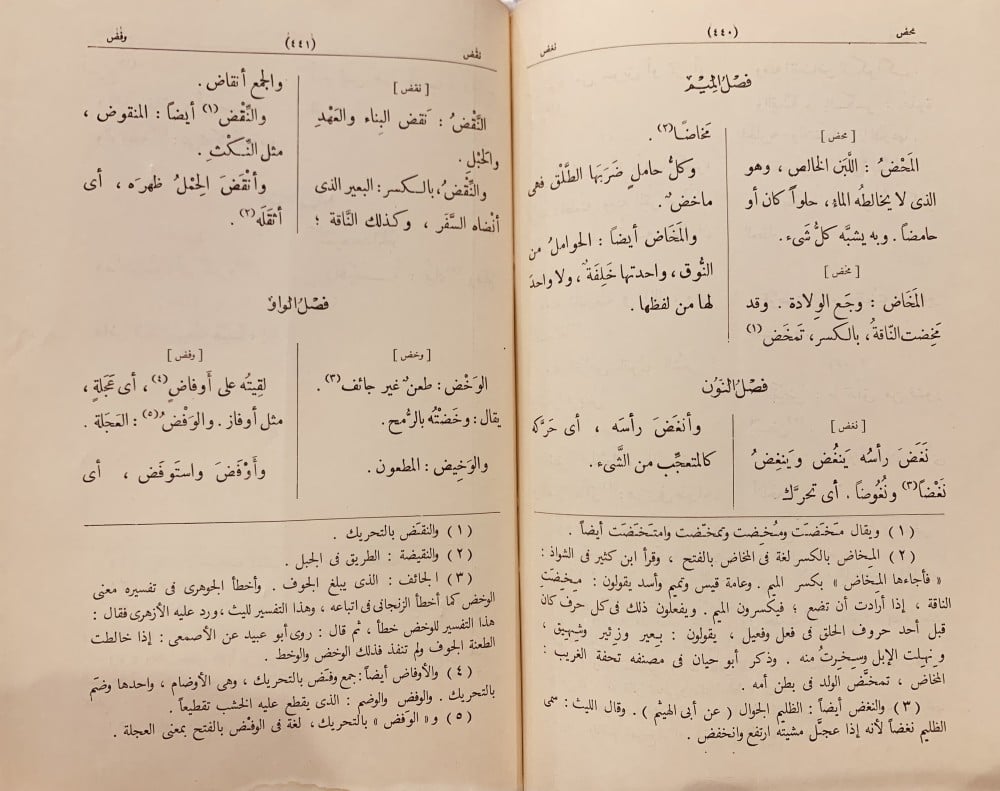 محض
(٤٤٠)
نغض
فصْلُ المِيْم
[ محض ]
المَحْضُ : اللَّبَن الخالص ، وهو
الذى لا يخالطُه الماءُ ، حلواً كان أو
حامضاً . وبه يشبَّه كلُّ شَىء .
[ مخض ]
المَخَاض : وجَع الوِلادة . وقد
مَخِضت النَّاقةُ ، بالكسر، تَمخَض(١)
مَخاضًا(٢) .
وكلُّ حاملٍ ضَرَبَها الطَّلْق فهى
ماخضٌ .
والمَخَاض أيضاً : الحواملُ من
النُّوق ، واحدتها خَلِفَةٌ ، ولا واحدَ
لها من لفظها .
فصْلُ النّوُن
[ نغض ]
نَغَضَ رأسُه يَنغُض ويَنغِضُ
نَغْضاً(٣) ونُغُوضاً . أى تحرَّك
وأنغَضَ رأسَه ، أى حَرَّكه
كالمتعجِّب من الشَّىء .
(١) ويقال مَخَضَتْ ومُخِضت وتمخَّضت وامتَخَضَت أيضاً .
(٢) المِخاض بالكسر لغة فى المخاض بالفتح ، وقرأ ابن كثير فى الشواذ :
« فأجاءها المِخاض » بكسر الميم . وعامة قيس وتميم وأسد يقولون : مِخِضَت
الناقة ، إذا أرادت أن تضع ؛ فيكسرون الميم . ويفعلون ذلك فى كل حرف كان
قبل أحد حروف الحلق فى فعل وفعيل ، يقولون : بِعِير وزئير وشهيق ،
ونِهِلت الإبل وسِخِرتُ منه . وذكر أبو حيان فى مصنفه تحفة الغريب :
المخاض ، تمخُّض الولد فى بطن أمه .
(٣) والنغض أيضاً : الظليم الجوال ( عن أبى الهيثم ) . وقال الليث : سمى
الظليم نغضاً لأنه إذا عجَّل مشيته ارتفع وانخفض .
نقض
(٤٤١)
وفض
[ نقض ]
النَّقْضُ : نَقض البِناء والعَهْدِ
والحَبْلِ .
والنِّقْضُ، بالكسر : البعير الذى
أنْضاه السَّفَر ، وكذلك النَّاقة ؛
والجمع أنقاض .
والنِّقْض(١) أيضاً : المنقوض ،
مثل النِّكْثِ .
وأنْقَضَ الحِمْلُ ظهرَه ، أى
أثقَلَه(٢) .
فصْل الواوْ
[ وخض ]
الوَخْض : طعنٌ غير جائف(٣) .
يقال : وخَضْتُه بالرُّمح .
والوَخِيض : المطعون .
[ وفض ]
لقِيتُه على أَوفاضٍ(٤) ، أى عَجَلةٍ ،
مثل أوفاز . والوَفْضُ(٥) : العَجَلة .
وأَوْفَضَ واستَوفَض ، أى
(١) والنَقَض بالتحريك .
(٢) والنقيضة : الطريق فى الجبل .
(٣) الجائف : الذى يبلغ الجوف . وأخطأ الجوهرى فى تفسيره معنى
الوخض كما أخطأ الزنجانى فى اتباعه ، وهذا التفسير لليث ، ورد عليه الأزهرى فقال :
هذا التفسير للوخض خطأ ، ثم قال : روى أبو عبيد عن الأصمعى : إذا خالطت
الطعنة الجوف ولم تنفذ فذلك الوخض والوخط .
(٤) والأوفاض أيضاً: جمع وفَض بالتحريك ، وهى الأوضام ، واحدها وضَم
بالتحريك . والوفض والوضم : الذى يقطع عليه الخشب تقطيعاً .
(٥) و« الوَفَض » بالتحريك، لغة فى الوفْض بالفتح بمعنى العجلة .